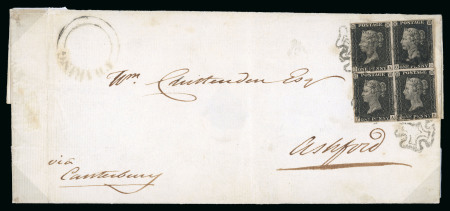 POSTAGE POSTAGE
ONE PENNY ONE PENNY
POSTAGE POSTAGE
ONE PENNY ONE PENNY
Wm Cruttenden Esq
Ashford
via
Canterbury